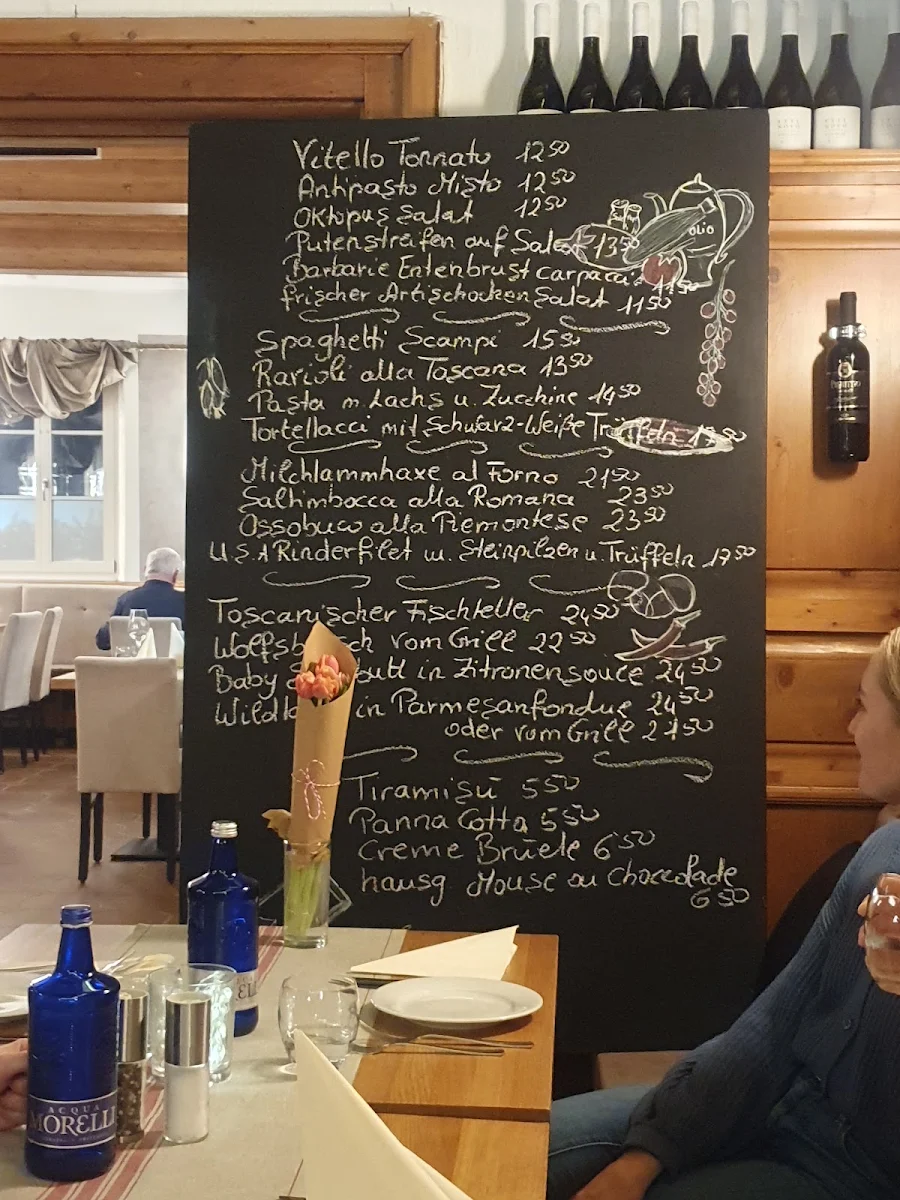 Vitello Tonnato 12 50
Antipasto Misto 12 50
Oktopus Salat 12 50
Putenstreifen auf Salat 13 50
OLIO
Barbarie Entenbrust carpaccio 11 50
frischer Artischocken Salat 11 50
Spaghetti Scampi 15 50
Ravioli alla Toscana 13 50
Pasta m. Lachs u. Zucchine 14 50
Tortellacci mit Schwarz-Weiße Trüffeln
Milchlammhaxe al Forno 21 50
Saltimbocca alla Romana 23 50
Ossobuco alla Piemontese 23 50
U.S.A Rinderfilet m. Steinpilzen u. Trüffeln
Toscanischer Fischteller 24 50
vom Grill 22 50
Baby in Zitronensouce 24 50
in Parmesanfondue 24 50
oder vom Grill 21 50
Tiramisù 5 50
Panna Cotta 5 50
Creme Bruele 6 50
hausg Mouse au Choccolade
6 50
ACQUA
MORELLI